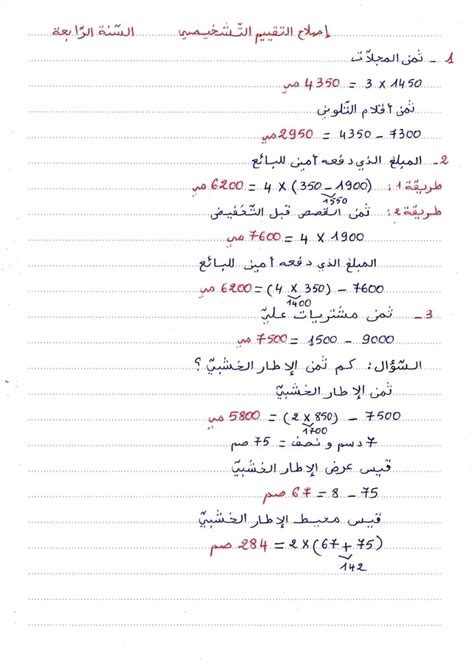 إصلاح التقييم التّشخيصي السّنة الرّابعة
1 - ثمن المجلّات
1450 × 3 = 4350 مي
ثمن أقلام التّلوين
7300 - 4350 = 2950 مي
2 - المبلغ الذي دفعه أمين للبائع
طريقة 1: (1900 - 350) × 4 = 6200 مي
1550
طريقة 2: ثمن القصص قبل التّخفيض
1900 × 4 = 7600 مي
المبلغ الذي دفعه أمين للبائع
7600 - (350 × 4) = 6200 مي
1400
3 - ثمن مشتريات عليّ
9000 - 1500 = 7500 مي
السّؤال: كم ثمن الإطار الخشبيّ ؟
ثمن الإطار الخشبيّ
7500 - (850 × 2) = 5800 مي
1700
7 دسم و نصف = 75 صم
قيس عرض الإطار الخشبيّ
75 - 8 = 67 صم
قيس محيط الإطار الخشبيّ
(75 + 67) × 2 = 284 صم
142